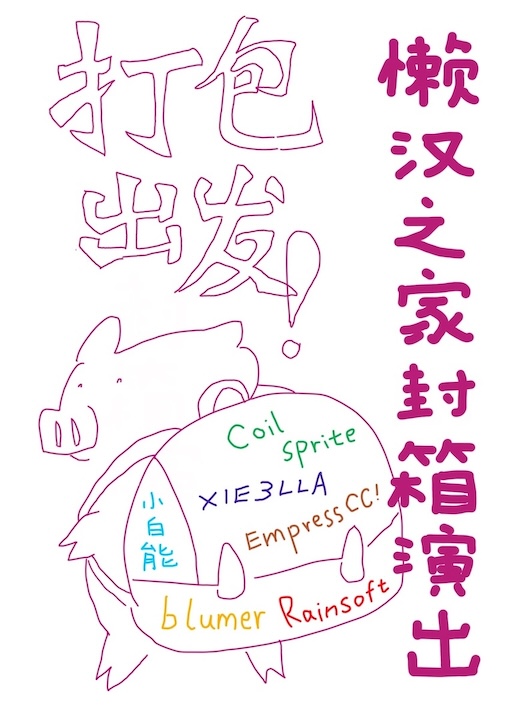 打包
出发!
懒汉之家封箱演出
Coil
sprite
XIE3LLA
EmpressCC!
小白能
blumer Rainsoft